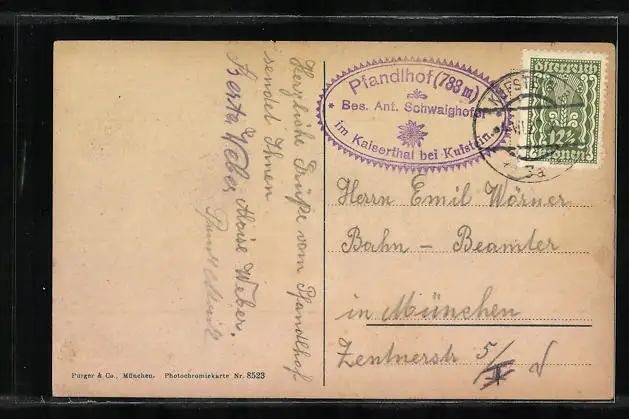 Herzliche Grüße vom Pfandlhof
sendet Ihnen
Berta Weber, Aloise Weber.
Pfandlhof (783 m)
Bes. Ant. Schwaighofer
im Kaiserthal bei Kufstein.
KUFSTE
3a
12½
Herrn Emil Wörner
Bahn - Beamter
in München
Zentnerstr 5/
Purger & Co., München. Photochromiekarte Nr. 8523